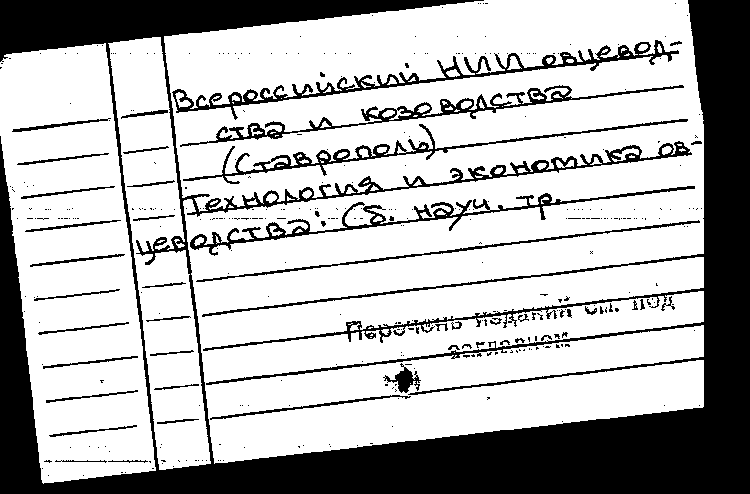 Всероссийский НИИ овцевод-
ства и козоводства
(Ставрополь).
Технология и экономика ов-
цеводства: Сб. науч. тр.
Перечень изданий см. под
заглавием